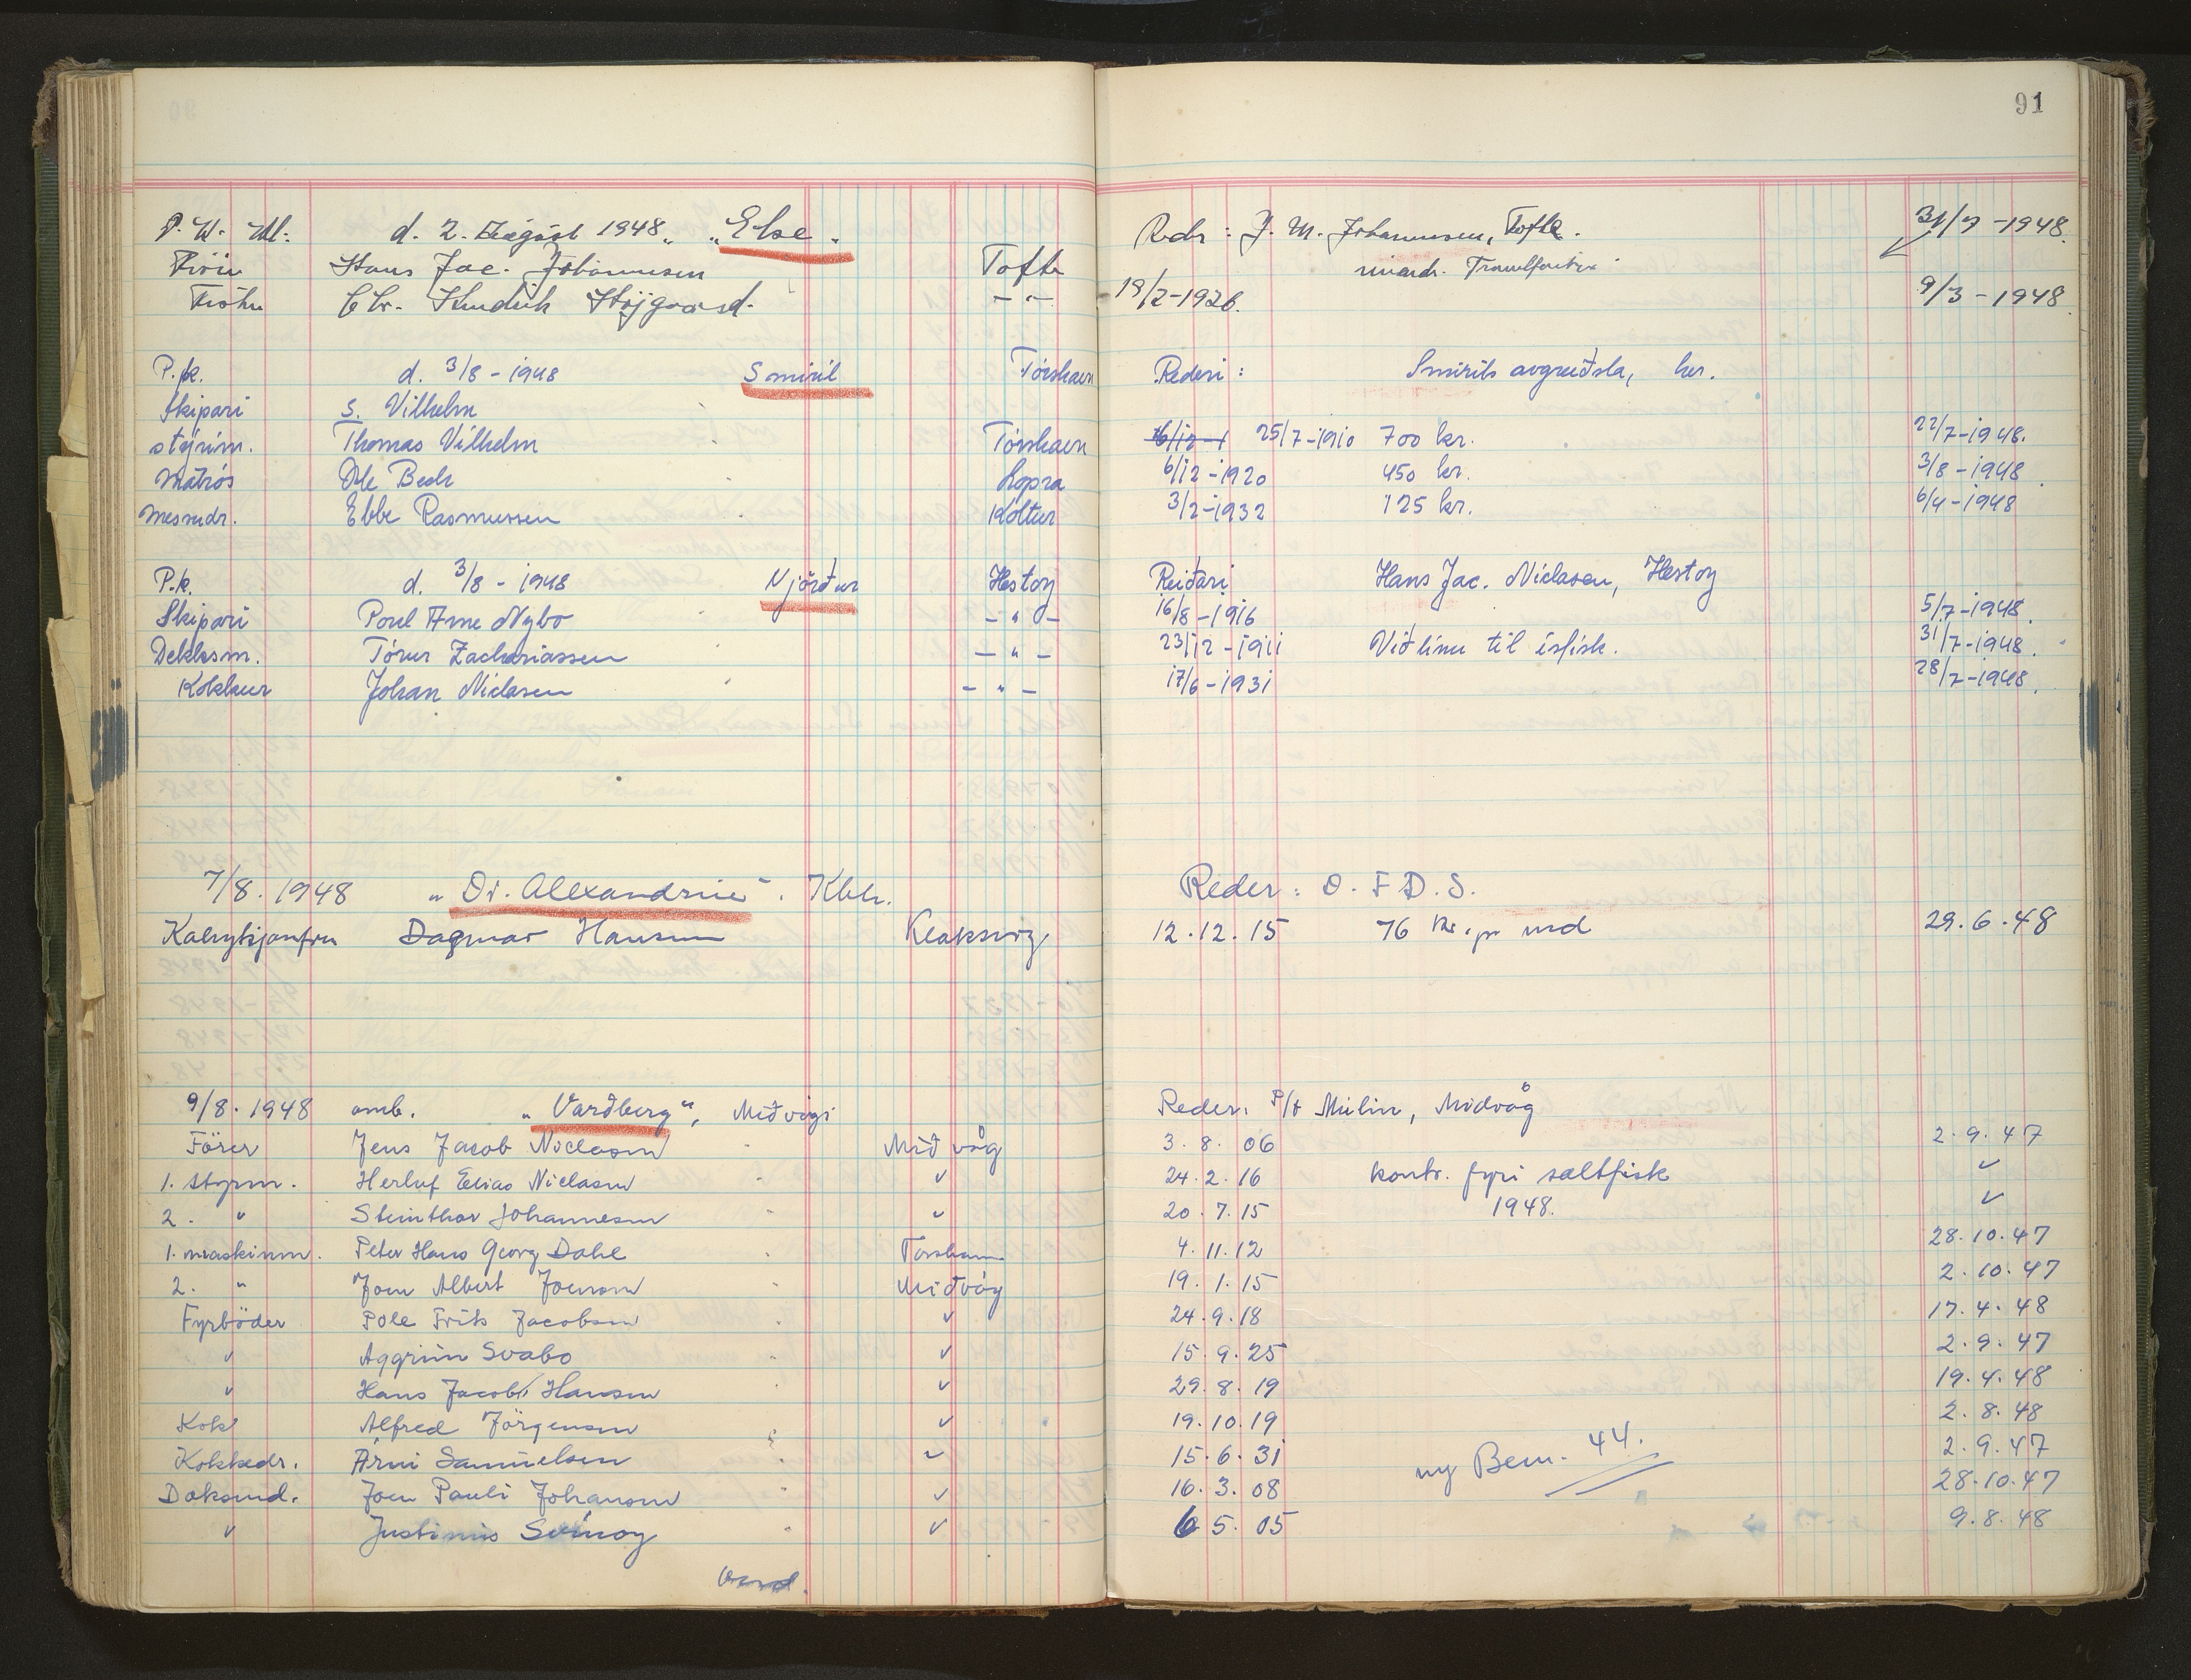 91
d. 2. August 1948, "Else" Redr: J. M. Johannesen, Tofte. 31/7-1948
Hans Jac. Johannesen Tofte
Chr. Hendrik Højgaard. -"- 19/2-1926. 9/3-1948
P.k. d. 3/8-1948 Smiril Tórshavn Rederi: Smirils avgreiðsla, her.
Skipari S. Vilhelm
stýrim. Thomas Vilhelm Tórshavn 25/7-1910 700 kr. 22/7-1948.
Matrós Ole Beck Hopra 6/12-1920 450 kr. 3/8-1948
Messudr. Ebbe Rasmussen Koltur 3/2-1932 125 kr. 6/4-1948
P.k. d. 3/8-1948 Njörður Hestoy Reiðari Hans Jac. Niclasen, Hestoy
Skipari Poul Arne Nybo -"- 16/8-1916 5/7-1948.
Dekksm. Tórur Zachariassen -"- 23/12-1911 Við línu til ísfisk. 31/7-1948.
Kokkur Johan Niclasen -"- 17/6-1931 28/7-1948.
7/8. 1948 "Dr. Alexandrine". Kbh. Reder: D. F. D. S.
Dagmar Hansen Klaksvig 12.12.15 76 kr. pr md 29.6.48
9/8. 1948 omb. "Vardberg", Miðvági Reder: P/f Múlin, Midvåg
Förer Jens Jacob Niclasen Miðvåg 3.8.06 2.9.47
1. styrm. Herluf Elias Niclasen " 24.2.16 kontr. fyri saltfisk "
2. " Steinthor Johannesen " 20.7.15 1948. "
1. maskinm. Peter Hans Georg Dahl Torshavn 4.11.12 28.10.47
2. " Joen Albert Joensen Miðvåg 19.1.15 2.10.47
Fyrböder Pole Frits Jacobsen " 24.9.18 17.4.48
" Aggrim Svabo " 15.9.25 2.9.47
" Hans Jacob Hansen " 29.8.19 19.4.48
Kok Alfred Jörgensen " 19.10.19 2.8.48
Kokkedr. Árni Samuelsen " 15.6.31 ny Bem. 44. 2.9.47
Daksmd. Joen Pauli Johansen " 16.3.08 28.10.47
" Justinus Svinoy " 6 5. 05 9.8.48
vend.